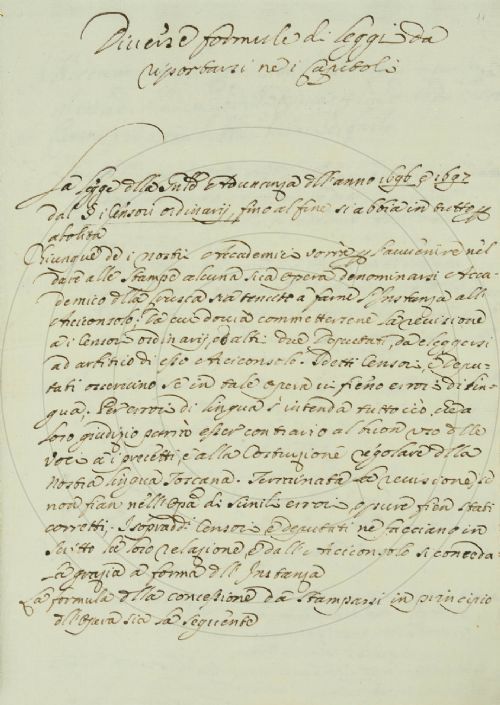 Diverse formule di leggi da
riportarsi ne i Capitoli
La legge della Adunanza dell'anno 1696 e 1697
dal § i Censori ordinarij, fino al fine si abbia in tutto
abolita
Chiunque de i nostri Accademici vorrà p l'avvenire nel
dare alle stampe alcuna sua opera denominarsi Acca-
demico della Crusca sia tenuto a farne l'Instanza all'
Arciconsolo; la cui dovrà commetterene la revisione
a i Censori ordinarij, o altri due Deputati, da eleggersi
ad arbitrio di esso Arciconsolo. I detti Censori, e Depu-
tati osservino se in tale opera vi sieno errori di lin-
gua; Per errori di lingua s'intenda tutto ciò, che a
loro giudizio potrà esser contrario al buon uso delle
voci a i precetti, e alla Costruzione regolare della
nostra lingua Toscana. Terminata la revisione, se
non sian nell'Opa di simili errori, o pure sien stati
corretti. I sopradi Censori e deputati ne facciano in
scritto la loro relazione e dall'Arciconsolo si conceda
la grazia a forma dell'Instanza
La formula della concessione da stamparsi in principio
dell'Opera sia la seguente